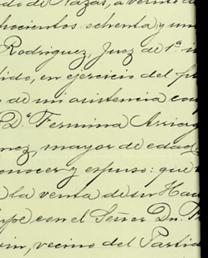 do de Nazas, a veinte d
chocientos ochenta y un
Rodriguez, Juez de 1ª
tido, en ejercicio del
s de mi asistencia con
D. Fermina
nez, mayor de edad
conocer y espuso: que
la venta de su Hac
con el Señor Dn.
vecino del Partid